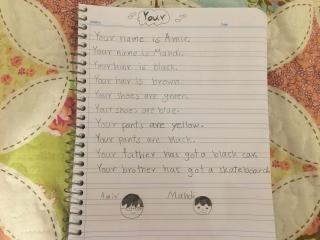 Your
Your name is Amir.
Your name is Mahdi.
Your hair is black.
Your hair is brown.
Your shoes are green.
Your shoes are blue.
Your pants are yellow.
Your pants are black.
Your father has got a black car.
Your brother has got a skateboard.
Amir Mahdi